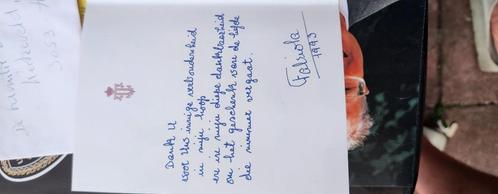 Dank U
voor Uw innige verbondenheid
in mijn hoop
en in mijn diepe dankbaarheid
om het geschenk van de liefde
die nimmer vergaat.
Fabiola
1993